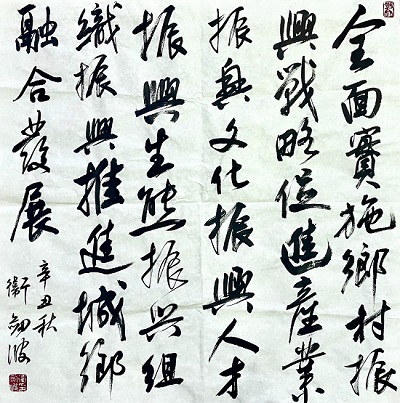 全面實施鄉村振
興戰略促進產業
振興文化振興人才
振興生態振兴組
織振興推進城鄉
融合發展
辛丑秋
衛劍波